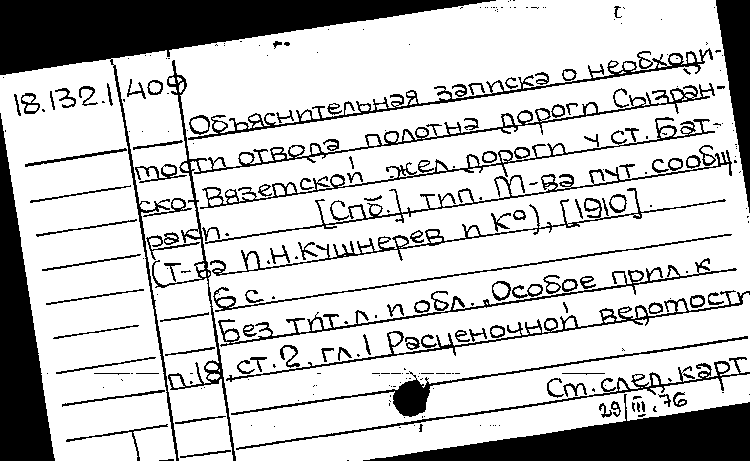 18.132.1.409
Объяснительная записка о необходи-
мости отвода полотна дороги Сызран-
ско-Вяземской жел. дороги у ст. Бат-
раки. [Спб.], тип. М-ва пут. сообщ.
(Т-ва П.Н.Кушнерев и К°), [1910].
6 с.
Без тит. л. и обл. „Особое прил. к
п.18, ст.2, гл.1 Расценочной ведомости
См. след. карт
29/III.76